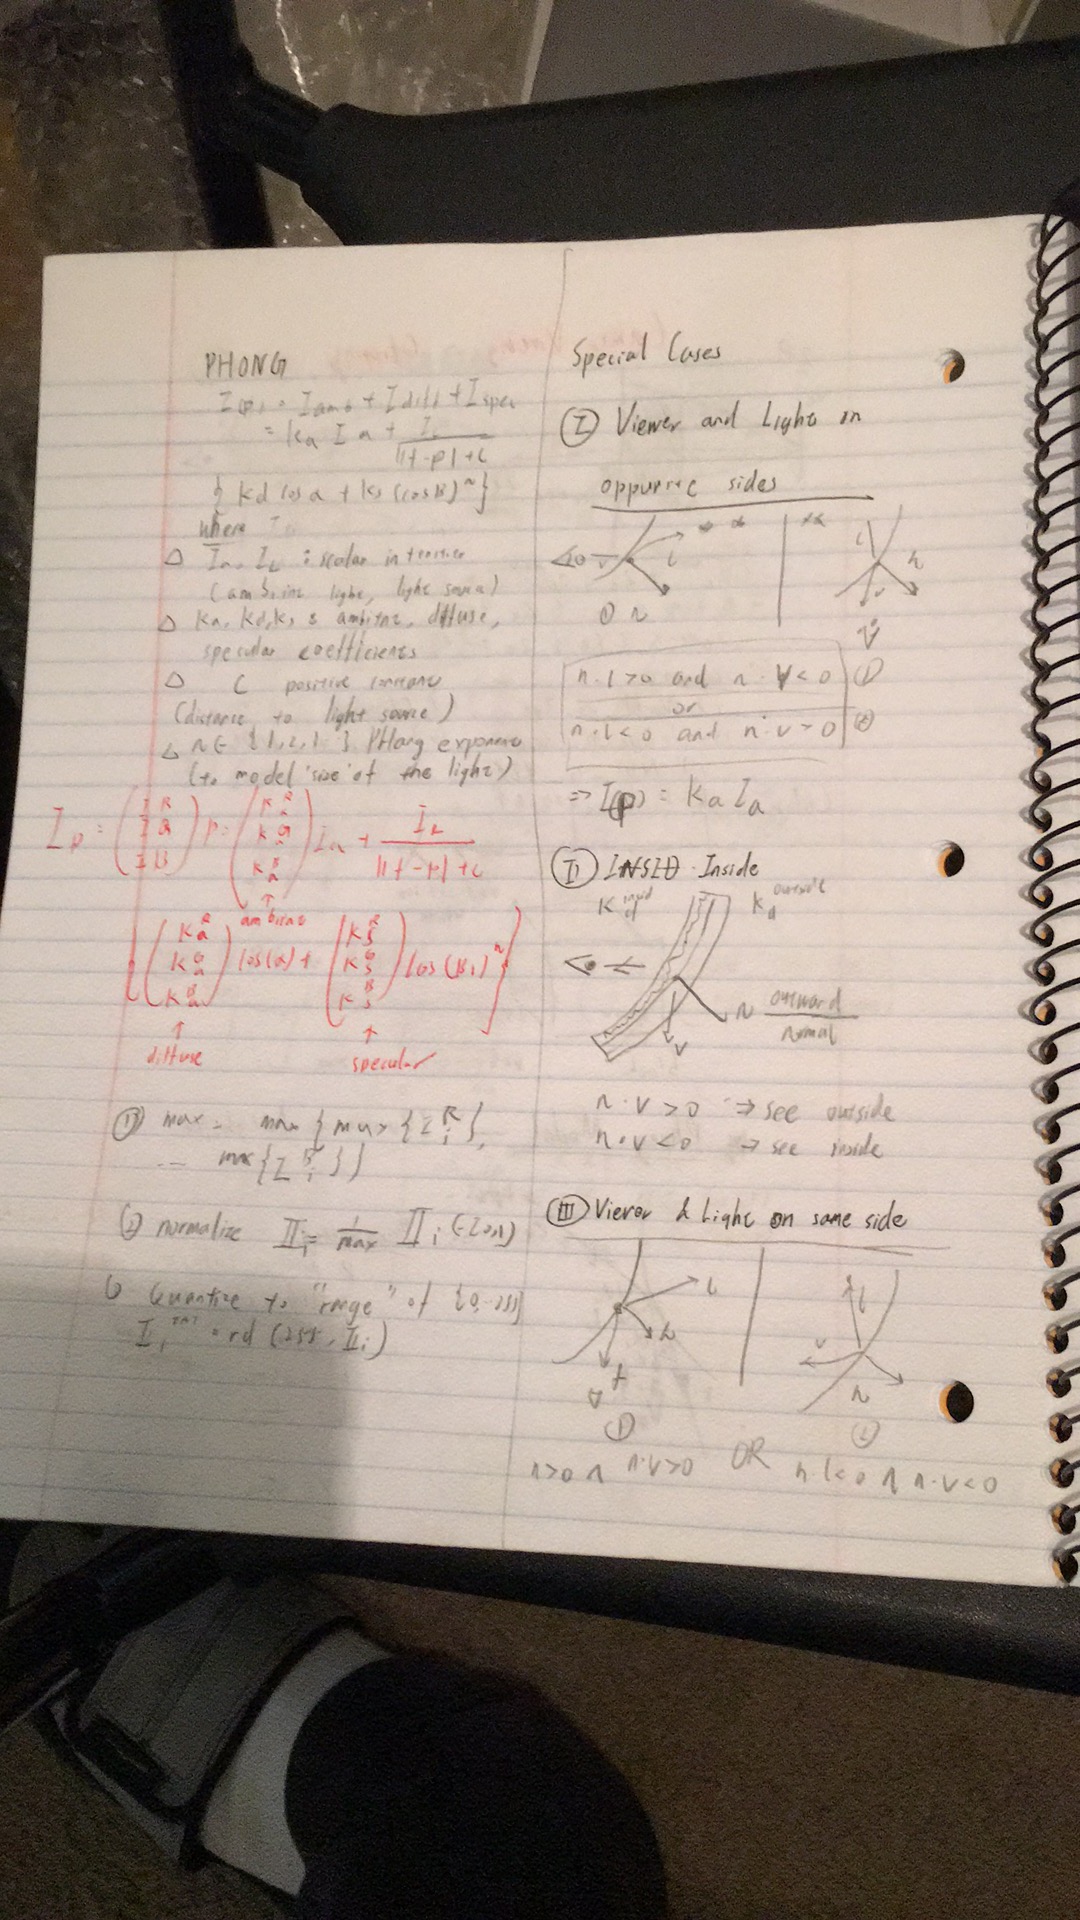 PHONG
I(p) = Iamb + Idiff + Ispec
= ka Ia + IL / ||f-p||+c
{ kd cos α + ks (cosβ)^n }
where
△ Ia, IL : scalar intensities
(ambient light, light source)
△ ka, kd, ks : ambient, diffuse,
specular coefficients
△ C positive constant
(distance to light source)
△ n ∈ {1,2,...} Phong exponent
(to model 'size' of the light)
Ip = (I^R I^G I^B) p = (K^R_a K^G_a K^B_a) Ia + IL / ||f-p||+c
ambient
{ (K^R_a K^G_a K^B_a) cos(α) + (K^R_s K^G_s K^B_s) cos(β)^n }
↑ diffuse ↑ specular
① max = max {max {I^R_i},
... max {I^B_i}}
② normalize II_i = 1/max II_i
Quantize to "range" of {0..255}
I_i^int = rd (255 · II_i)
Special Cases
Ⓘ Viewer and Light on
oppurite sides
l
① n
l n
v
n·l>0 and n·v<0 ①
or
n·l<0 and n·v>0 ②
⇒ I(p) = Ka Ia
Ⓘⓘ Inside
K^inside_d K^outside_d
n outward
normal
v
n·v>0 → see outside
n·v<0 → see inside
ⒾⒾⒾ Viewer & Light on same side
l l
n v
n
①
②
n>0 ∧ n·v>0 OR n·l<0 ∧ n·v<0